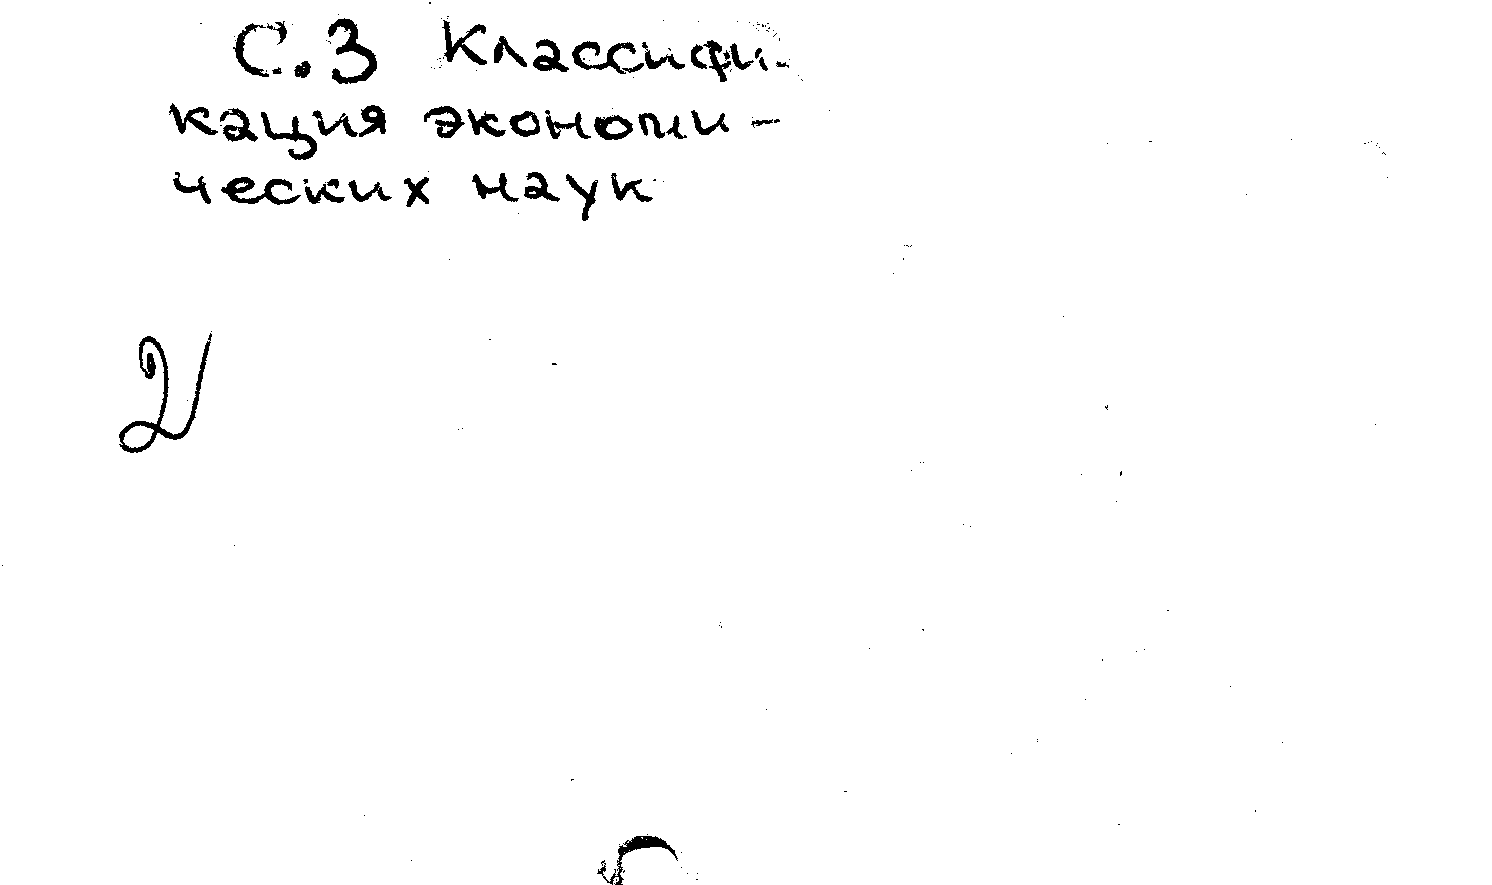 С.3 Классифи-
кация экономи-
ческих наук